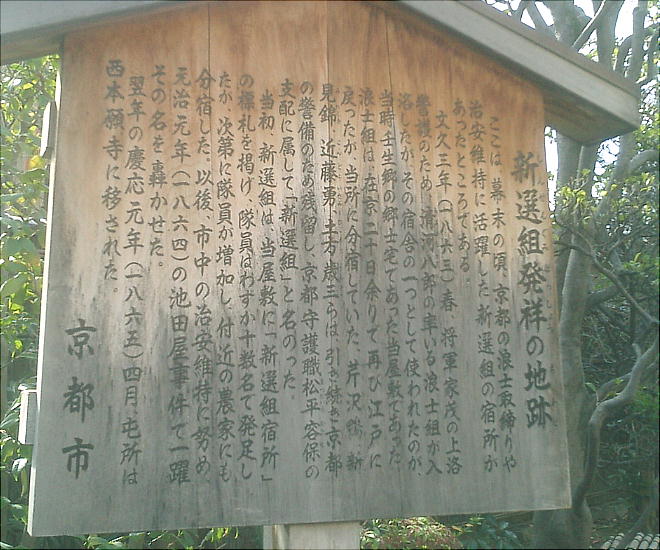 新選組発祥の地跡
ここは、幕末の頃、京都の浪士取締りや
治安維持に活躍した新選組の宿所が
あったところである。
文久三年(一八六三)春、将軍家茂の上洛
警護のため、清河八郎の率いる浪士組が入
洛したが、その宿舎の一つとして使われたのが、
当時壬生郷の郷士宅であった当屋敷であった。
浪士組は、在京二十日余りで再び江戸に
戻ったが、当所に分宿していた、芹沢鴨、新
見錦、近藤勇、土方歳三らは、引き続き京都
の警備のため残留し、京都守護職松平容保の
支配に属して「新選組」と名のった。
当初、新選組は、当屋敷に「新選組宿所」
の標札を掲げ、隊員はわずか十数名で発足し
たが、次第に隊員が増加し、付近の農家にも
分宿した。以後、市中の治安維持に努め、
元治元年(一八六四)の池田屋事件で一躍
その名を轟かせた。
翌年の慶応元年(一八六五)四月、屯所は
西本願寺に移された。
京都市